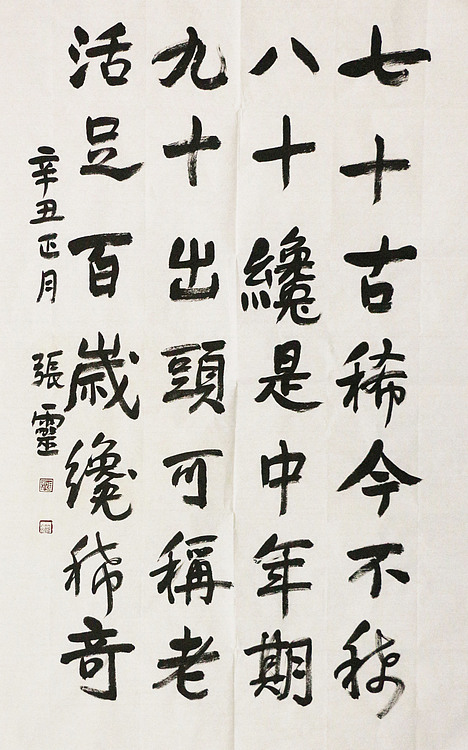 七十古稀今不稀
八十纔是中年期
九十出頭可稱老
活足百歲纔稀奇
辛丑正月 張靈